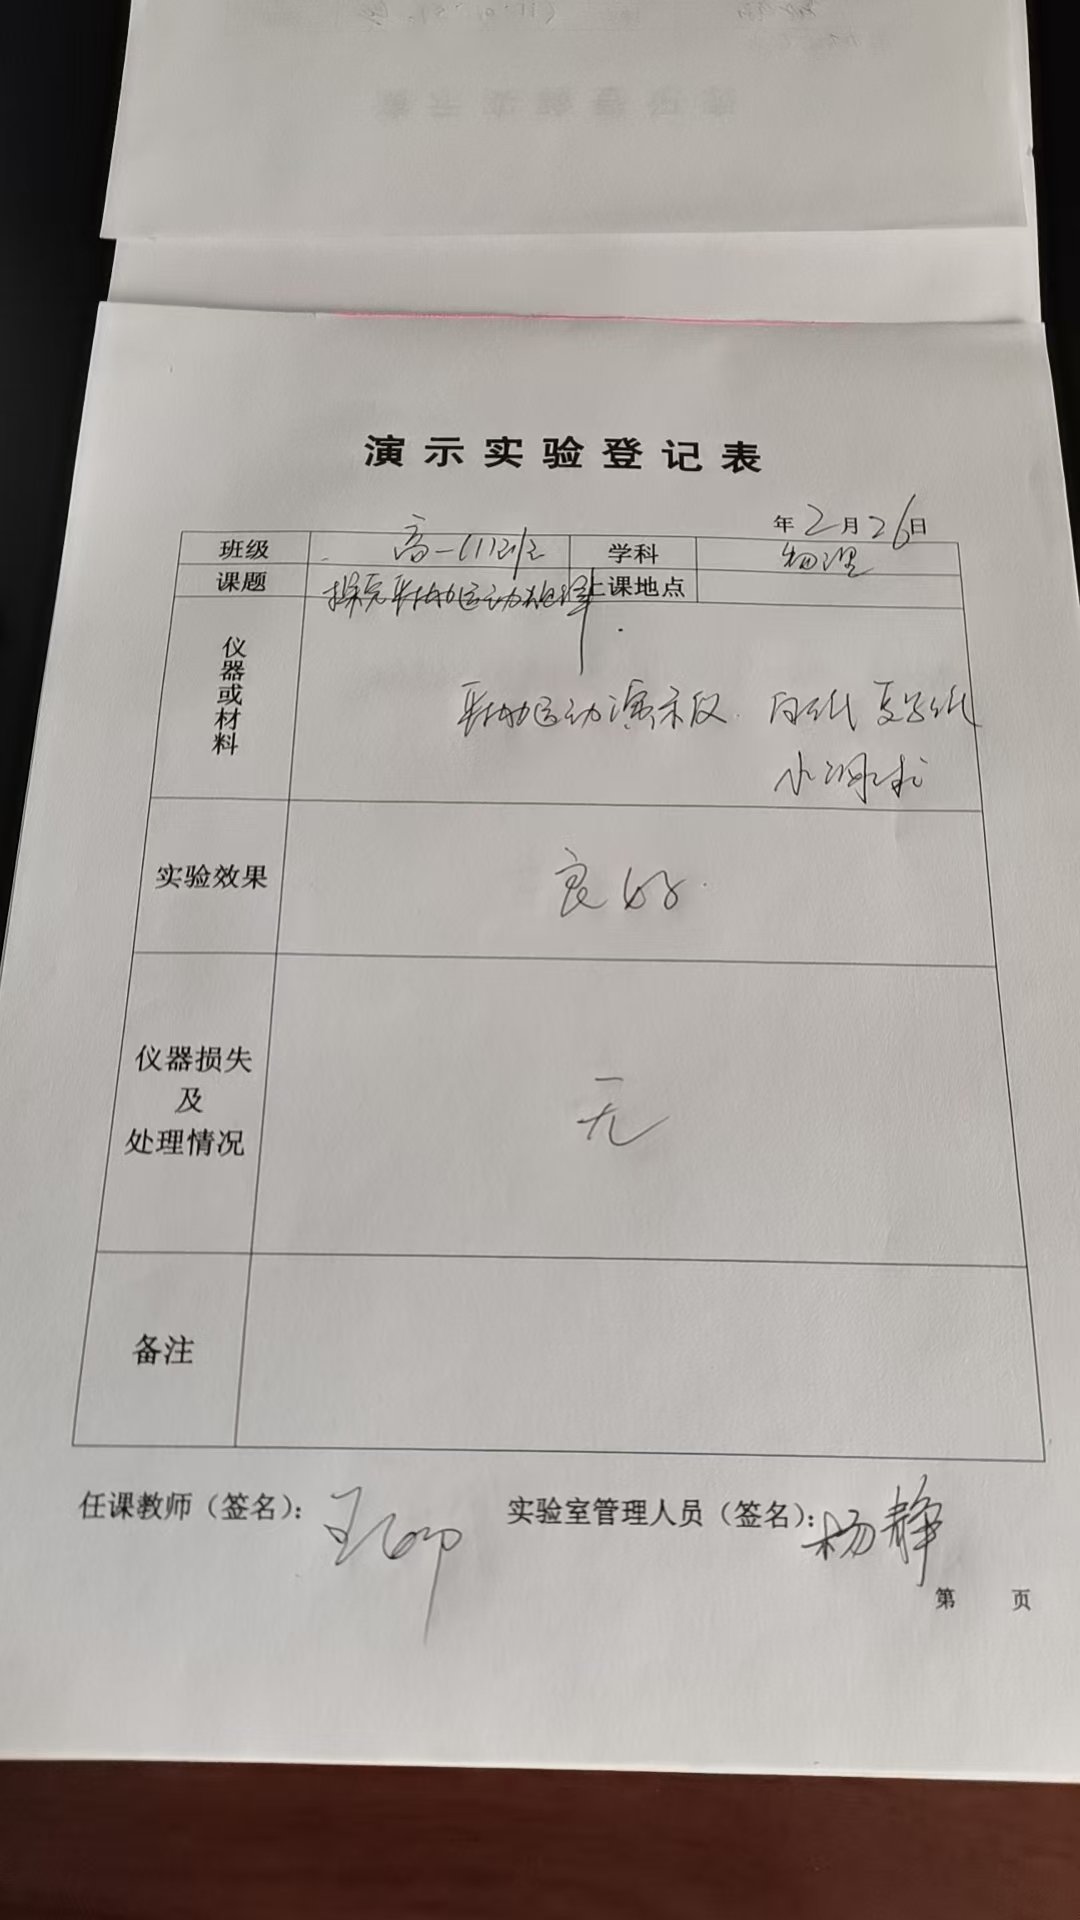 演示实验登记表
年2月26日
班级 高一(1)班 学科 物理
课题 探究平抛运动规律 上课地点
仪器或材料 平抛运动演示仪. 白纸 复写纸
小钢球
实验效果 良好.
仪器损失
及
处理情况 无
备注
任课教师（签名）： 王 实验室管理人员（签名）：杨静
第 页